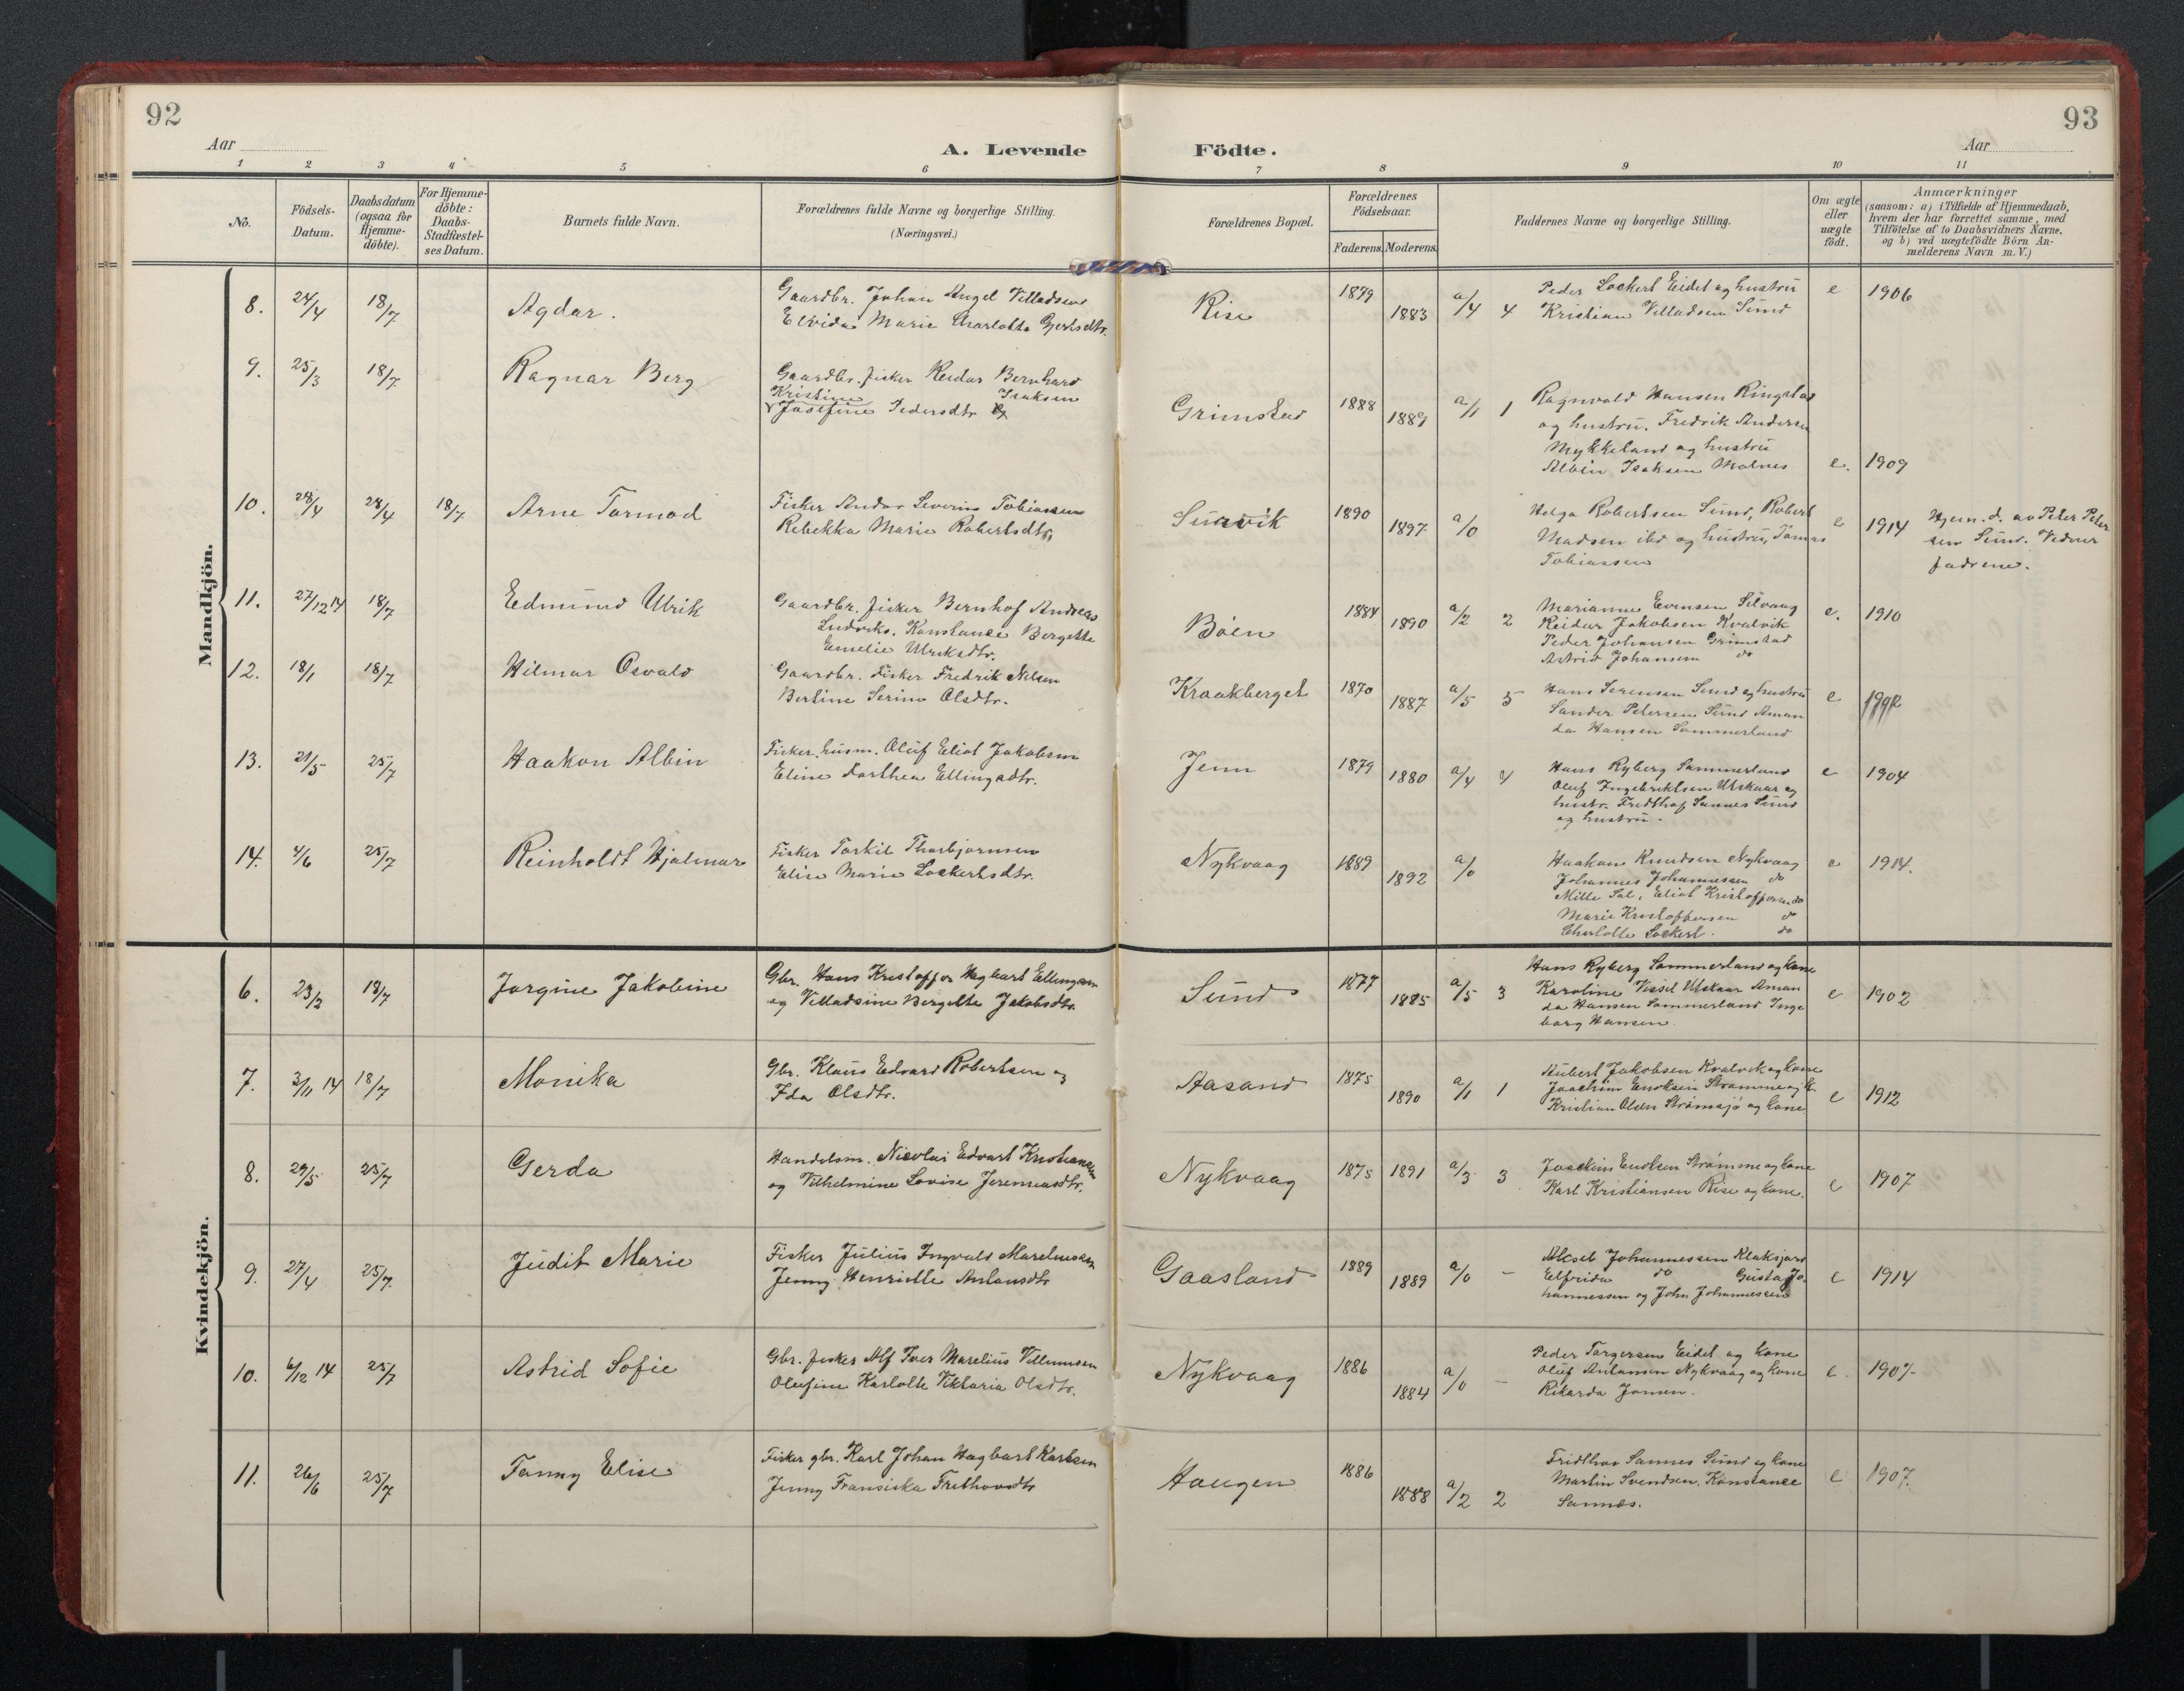 92
93
Aar
A. Levende
Födte.
Aar
1 2 3 4 5 6 7 8 9 10 11
No.
Födsels-
Datum.
Daabsdatum
(ogsaa for
Hjemme-
döbte).
For Hjemme-
döbte:
Daabs-
Stadfæstel-
ses Datum.
Barnets fulde Navn.
Forældrenes fulde Navne og borgerlige Stilling.
(Næringsvei.)
Forældrenes Bopæl.
Forældrenes
Födselsaar.
Faderens. Moderens.
Faddernes Navne og borgerlige Stilling.
Om ægte
eller
uægte
födt.
Anmærkninger
(saasom: a) i Tilfælde af Hjemmedaab,
hvem der har forrettet samme, med
Tilföielse af to Daabsvidners Navne,
og b) ved uægtefödte Börn An-
melderens Navn m.V.)
Mandkjön.
8. 24/4 18/7 Agdar.
Gaardbr. Johan Angel Villadsen
Elvida Marie Charlotte Gjertsdtr.
Rise 1879 1883 a/4 4
Peder Lockert Eidet og hustru
Kristian Villadsen Sund
e 1906
9. 25/3 18/7 Ragnar Berg
Gaardbr. fisker Reidar Bernhard
Isaksen
Kristine
Josefine Pedersdtr.
Grimstad 1888 1889 a/1 1
Ragnvald Hansen Ringstad
og hustru. Fredrik Andersen
Mykkeland og hustru
Albin Isaksen Malnes
e. 1909
10. 28/4 28/4 18/7 Arne Tormod
Fisker Andor Severin Tobiassen
Rebekka Marie Robertsdtr.
Sundvik 1890 1897 a/0
Helga Robertsen Sund, Robert
Madsen ibd og hustru, Tomas
Tobiassen
e 1914
Hjem. d. av Peter Peter
sen Sund. Vidner
fadrene.
11. 27/12 14 18/7 Edmund Ulrik
Gaardbr. fisker Bernhof Andreas
Ludviks. Konstance Bergette
Emelie Ulriksdtr.
Bøen 1884 1890 a/2 2
Marianne Evensen Selvaag
Reidar Jakobsen Kvalvik
Peder Johansen Grimstad
Astrid Johansen do
e. 1910
12. 18/1 18/7 Hilmar Osvald
Gaardbr. Fisker Fredrik Nilsen
Bertine Serine Olsdtr.
Kraakberget 1870 1887 a/5 5
Hans Sørensen Sund og hustru
Sander Petersen Sund Aman
da Hansen Sommerland
e
13. 21/5 25/7 Haakon Albin
Fisker. husm. Oluf Eliot Jakobsen
Eline Dorthea Ellingsdtr.
Jenn 1879 1880 a/4 4
Hans Ryberg Sommerland
Oluf Ingebriktsen Utskaar og
hustr. Fridthof Sannes Sund
og hustru.
e 1904
14. 4/6 25/7 Reinholdt Hjalmar
Fisker Torkil Thorbjørnsen
Elise Marie Lockertsdtr.
Nykvaag 1889 1892 a/0
Haakon Knudsen Nykvaag
Johannes Johannessen do
Mille Sal, Eliot Kristoffersen do
Marie Kristoffersen do
Charlotte Lockert. do
e 1914.
Kvindekjön.
6. 23/2 18/7 Jørgine Jakobine
Gbr. Hans Kristoffer Hagbart Ellingsen
og Villadsine Bergette Jakobsdtr.
Sund 1877 1885 a/5 3
Hans Ryberg Sommerland og kone
Karoline Vessel Utskaar Aman
da Hansen Sommerland Inge
borg Hansen
e 1902
7. 3/11 14 18/7 Monika
Gbr. Klaus Edvard Robertsen og
Ida Olsdtr.
Aasand 1875 1890 a/1 1
Hubert Jakobsen Kvalvik og kone
Joachim Enoksen Strømme og k.
Kristian Olsen Strømsjø og kone
e 1912
8. 29/5 25/7 Gerda
Handelsm. Nicolai Edvart Kristiansen
og Vilhelmine Lovise Jeremiasdtr.
Nykvaag 1875 1891 a/3 3
Joachim Enoksen Strømme og kone
Karl Kristiansen Rise og kone.
e 1907
9. 27/4 25/7 Judit Marie
Fisker Julius Ingvald Mareliussen
Jenny Henriette Antonsdtr
Gaasland 1889 1889 a/0 –
Aksel Johannessen Klaksjord
Elfrida do Gusta Jo.
hannessen og John Johannessen
e 1914
10. 6/12 14 25/7 Astrid Sofie
Gbr. fisker Alf Iver Marelius Villumsen
Olufine Karlotte Viktoria Olsdtr.
Nykvaag 1886 1884 a/0 –
Peder Torgersen Eidet og kone
Oluf Antonsen Nykvaag og kone
Rikarda Jonsen.
e. 1907.
11. 26/6 25/7 Fanny Elise
Fisker gbr. Karl Johan Hagbart Karlsen
Jenny Fransiska Frithovsdtr
Haugen 1886 1888 a/2 2
Fridthov Sannes Sund og kone
Martin Svendsen. Konstance
Sannes.
e 1907.